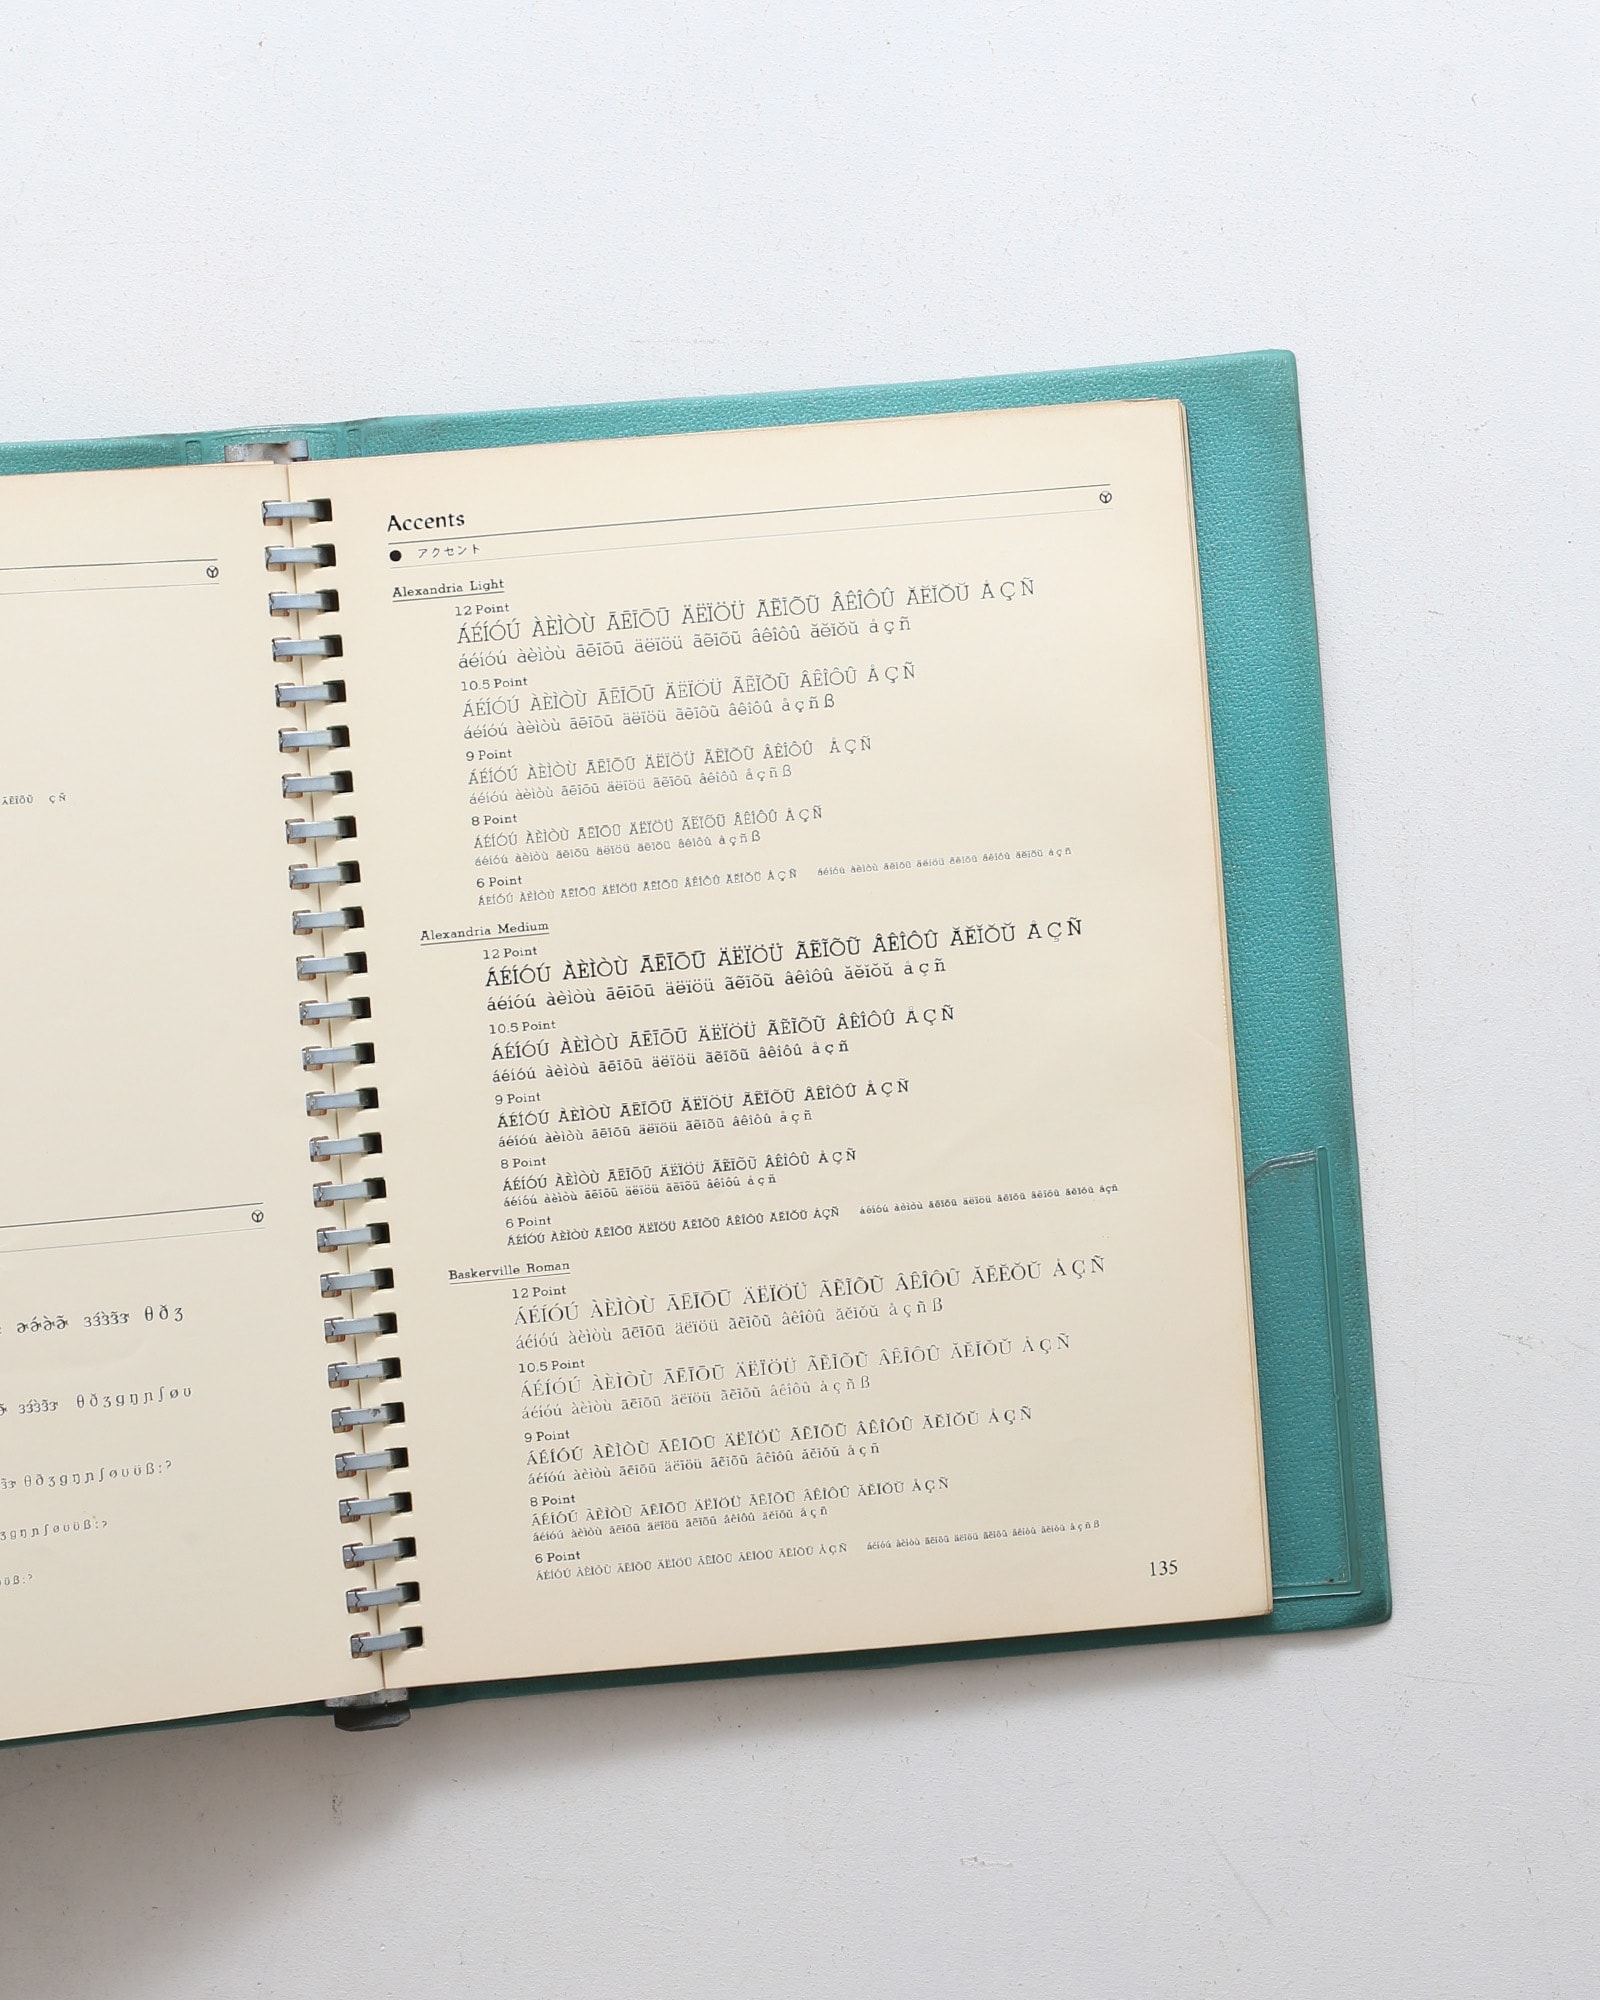 ÃẼĨÕŨ Ç Ñ
θ ð ʒ
θ ð ʒ g ŋ ɲ ʃ ø ʋ
Accents
● アクセント
Alexandria Light
12 Point
ÁÉÍÓÚ ÀÈÌÒÙ ĀĒĪŌŪ ÄËÏÖÜ ÃẼĨÕŨ ÂÊÎÔÛ ĂĔĬŎŬ Å Ç Ñ
áéíóú àèìòù āēīōū äëïöü ãẽĩõũ âêîôû ăĕĭŏŭ å ç ñ
10.5 Point
ÁÉÍÓÚ ÀÈÌÒÙ ĀĒĪŌŪ ÄËÏÖÜ ÃẼĨÕŨ ÂÊÎÔÛ Å Ç Ñ
áéíóú àèìòù āēīōū äëïöü ãẽĩõũ âêîôû å ç ñ ß
9 Point
ÁÉÍÓÚ ÀÈÌÒÙ ĀĒĪŌŪ ÄËÏÖÜ ÃẼĨÕŨ ÂÊÎÔÛ Å Ç Ñ
áéíóú àèìòù āēīōū äëïöü ãẽĩõũ âêîôû å ç ñ ß
8 Point
ÁÉÍÓÚ ÀÈÌÒÙ ĀĒĪŌŪ ÄËÏÖÜ ÃẼĨÕŨ ÂÊÎÔÛ Å Ç Ñ
áéíóú àèìòù āēīōū äëïöü ãẽĩõũ âêîôû å ç ñ ß
6 Point
ÁÉÍÓÚ ÀÈÌÒÙ ĀĒĪŌŪ ÄËÏÖÜ ÃẼĨÕŨ ÂÊÎÔÛ ĂĔĬŎŬ Å Ç Ñ áéíóú àèìòù āēīōū äëïöü ãẽĩõũ âêîôû ăĕĭŏŭ å ç ñ
Alexandria Medium
12 Point
ÁÉÍÓÚ ÀÈÌÒÙ ĀĒĪŌŪ ÄËÏÖÜ ÃẼĨÕŨ ÂÊÎÔÛ ĂĔĬŎŬ Å Ç Ñ
áéíóú àèìòù āēīōū äëïöü ãẽĩõũ âêîôû ăĕĭŏŭ å ç ñ
10.5 Point
ÁÉÍÓÚ ÀÈÌÒÙ ĀĒĪŌŪ ÄËÏÖÜ ÃẼĨÕŨ ÂÊÎÔÛ Å Ç Ñ
áéíóú àèìòù āēīōū äëïöü ãẽĩõũ âêîôû å ç ñ
9 Point
ÁÉÍÓÚ ÀÈÌÒÙ ĀĒĪŌŪ ÄËÏÖÜ ÃẼĨÕŨ ÂÊÎÔÛ Å Ç Ñ
áéíóú àèìòù āēīōū äëïöü ãẽĩõũ âêîôû å ç ñ
8 Point
ÁÉÍÓÚ ÀÈÌÒÙ ĀĒĪŌŪ ÄËÏÖÜ ÃẼĨÕŨ ÂÊÎÔÛ Å Ç Ñ
áéíóú àèìòù āēīōū äëïöü ãẽĩõũ âêîôû å ç ñ
6 Point
ÁÉÍÓÚ ÀÈÌÒÙ ĀĒĪŌŪ ÄËÏÖÜ ÃẼĨÕŨ ÂÊÎÔÛ ĂĔĬŎŬ ÅÇÑ áéíóú àèìòù āēīōū äëïöü ãẽĩõũ âêîôû ăĕĭŏŭ åçñ
Baskerville Roman
12 Point
ÁÉÍÓÚ ÀÈÌÒÙ ĀĒĪŌŪ ÄËÏÖÜ ÃẼĨÕŨ ÂÊÎÔÛ ĂĔĔŎŬ Å Ç Ñ
áéíóú àèìòù āēīōū äëïöü ãẽĩõũ âêîôû ăĕĭŏŭ å ç ñ ß
10.5 Point
ÁÉÍÓÚ ÀÈÌÒÙ ĀĒĪŌŪ ÄËÏÖÜ ÃẼĨÕŨ ÂÊÎÔÛ ĂĔĬŎŬ Å Ç Ñ
áéíóú àèìòù āēīōū äëïöü ãẽĩõũ âêîôû å ç ñ ß
9 Point
ÁÉÍÓÚ ÀÈÌÒÙ ĀĒĪŌŪ ÄËÏÖÜ ÃẼĨÕŨ ÂÊÎÔÛ ĂĔĬŎŬ Å Ç Ñ
áéíóú àèìòù āēīōū äëïöü ãẽĩõũ âêîôû ăĕĭŏŭ å ç ñ
8 Point
ÁÉÍÓÚ ÀÈÌÒÙ ĀĒĪŌŪ ÄËÏÖÜ ÃẼĨÕŨ ÂÊÎÔÛ ĂĔĬŎŬ Å Ç Ñ
áéíóú àèìòù āēīōū äëïöü ãẽĩõũ âêîôû ăĕĭŏŭ å ç ñ
6 Point
ÁÉÍÓÚ ÀÈÌÒÙ ĀĒĪŌŪ ÄËÏÖÜ ÃẼĨÕŨ ÂÊÎÔÛ ĂĔĬŎŬ Å Ç Ñ áéíóú àèìòù āēīōū äëïöü ãẽĩõũ âêîôû ăĕĭŏŭ å ç ñ ß
135